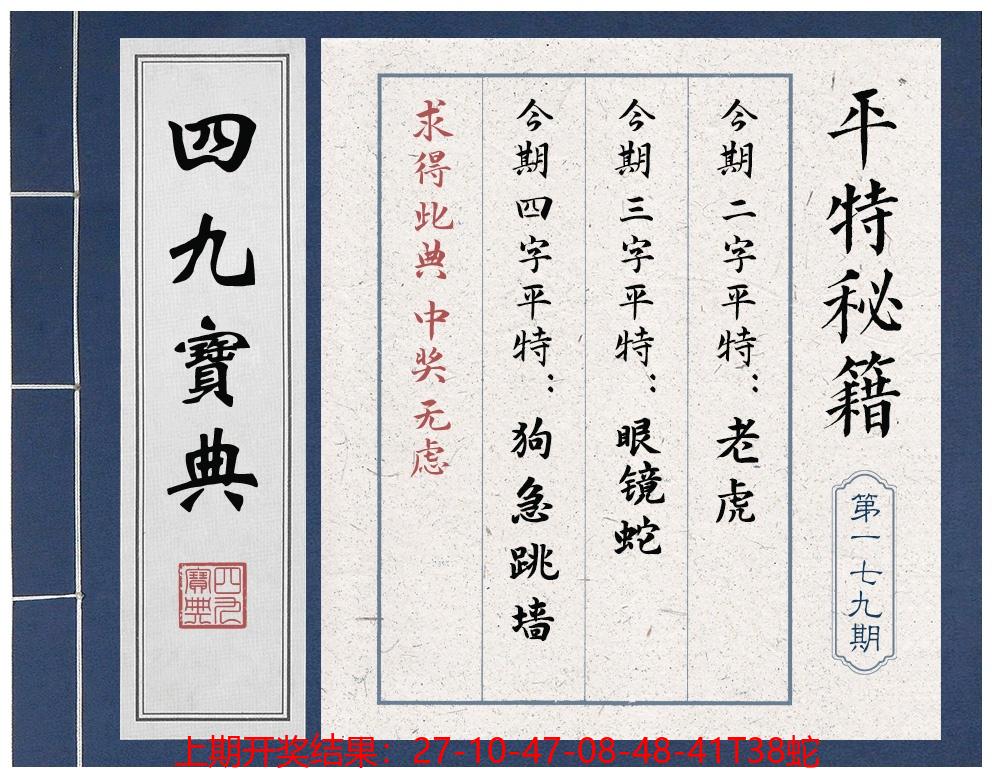 平特秘籍
第一七九期
今期二字平特：老虎
今期三字平特：眼镜蛇
今期四字平特：狗急跳墙
求得此典 中奖无虑
四九寶典
四九寶典
上期开奖结果：27-10-47-08-48-41T38蛇